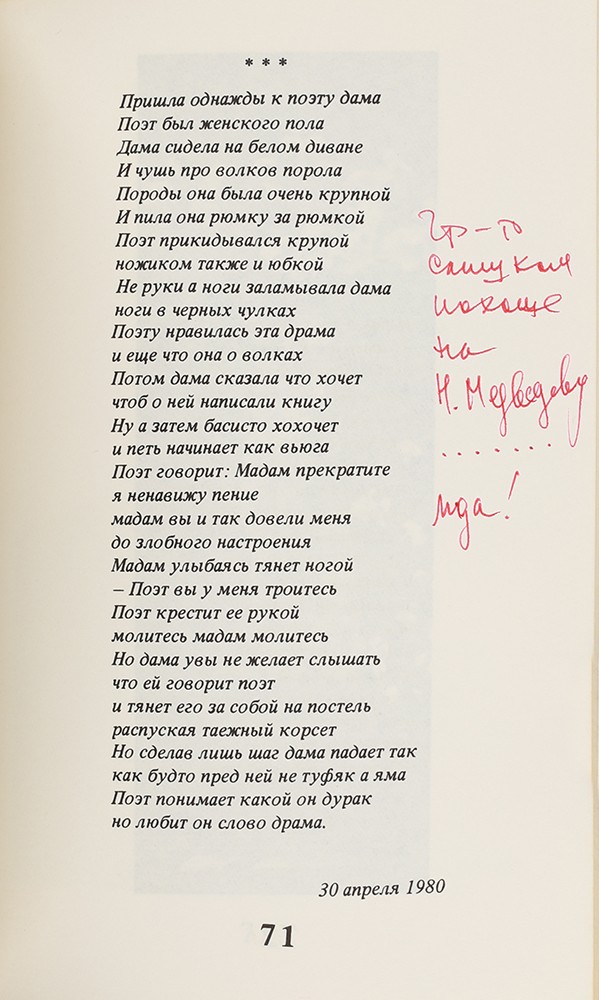 * * *
Пришла однажды к поэту дама
Поэт был женского пола
Дама сидела на белом диване
И чушь про волков порола
Породы она была очень крупной
И пила она рюмку за рюмкой
Поэт прикидывался крупой
ножиком также и юбкой
Не руки а ноги заламывала дама
ноги в черных чулках
Поэту нравилась эта драма
и еще что она о волках
Потом дама сказала что хочет
чтоб о ней написали книгу
Ну а затем басисто хохочет
и петь начинает как вьюга
Поэт говорит: Мадам прекратите
я ненавижу пение
мадам вы и так довели меня
до злобного настроения
Мадам улыбаясь тянет ногой
– Поэт вы у меня троитесь
Поэт крестит ее рукой
молитесь мадам молитесь
Но дама увы не желает слышать
что ей говорит поэт
и тянет его за собой на постель
распуская таежный корсет
Но сделав лишь шаг дама падает так
как будто пред ней не туфяк а яма
Поэт понимает какой он дурак
но любит он слово драма.
30 апреля 1980
71
слишком
похоже
на
Н. Медведеву
. . . . . . .
мда!